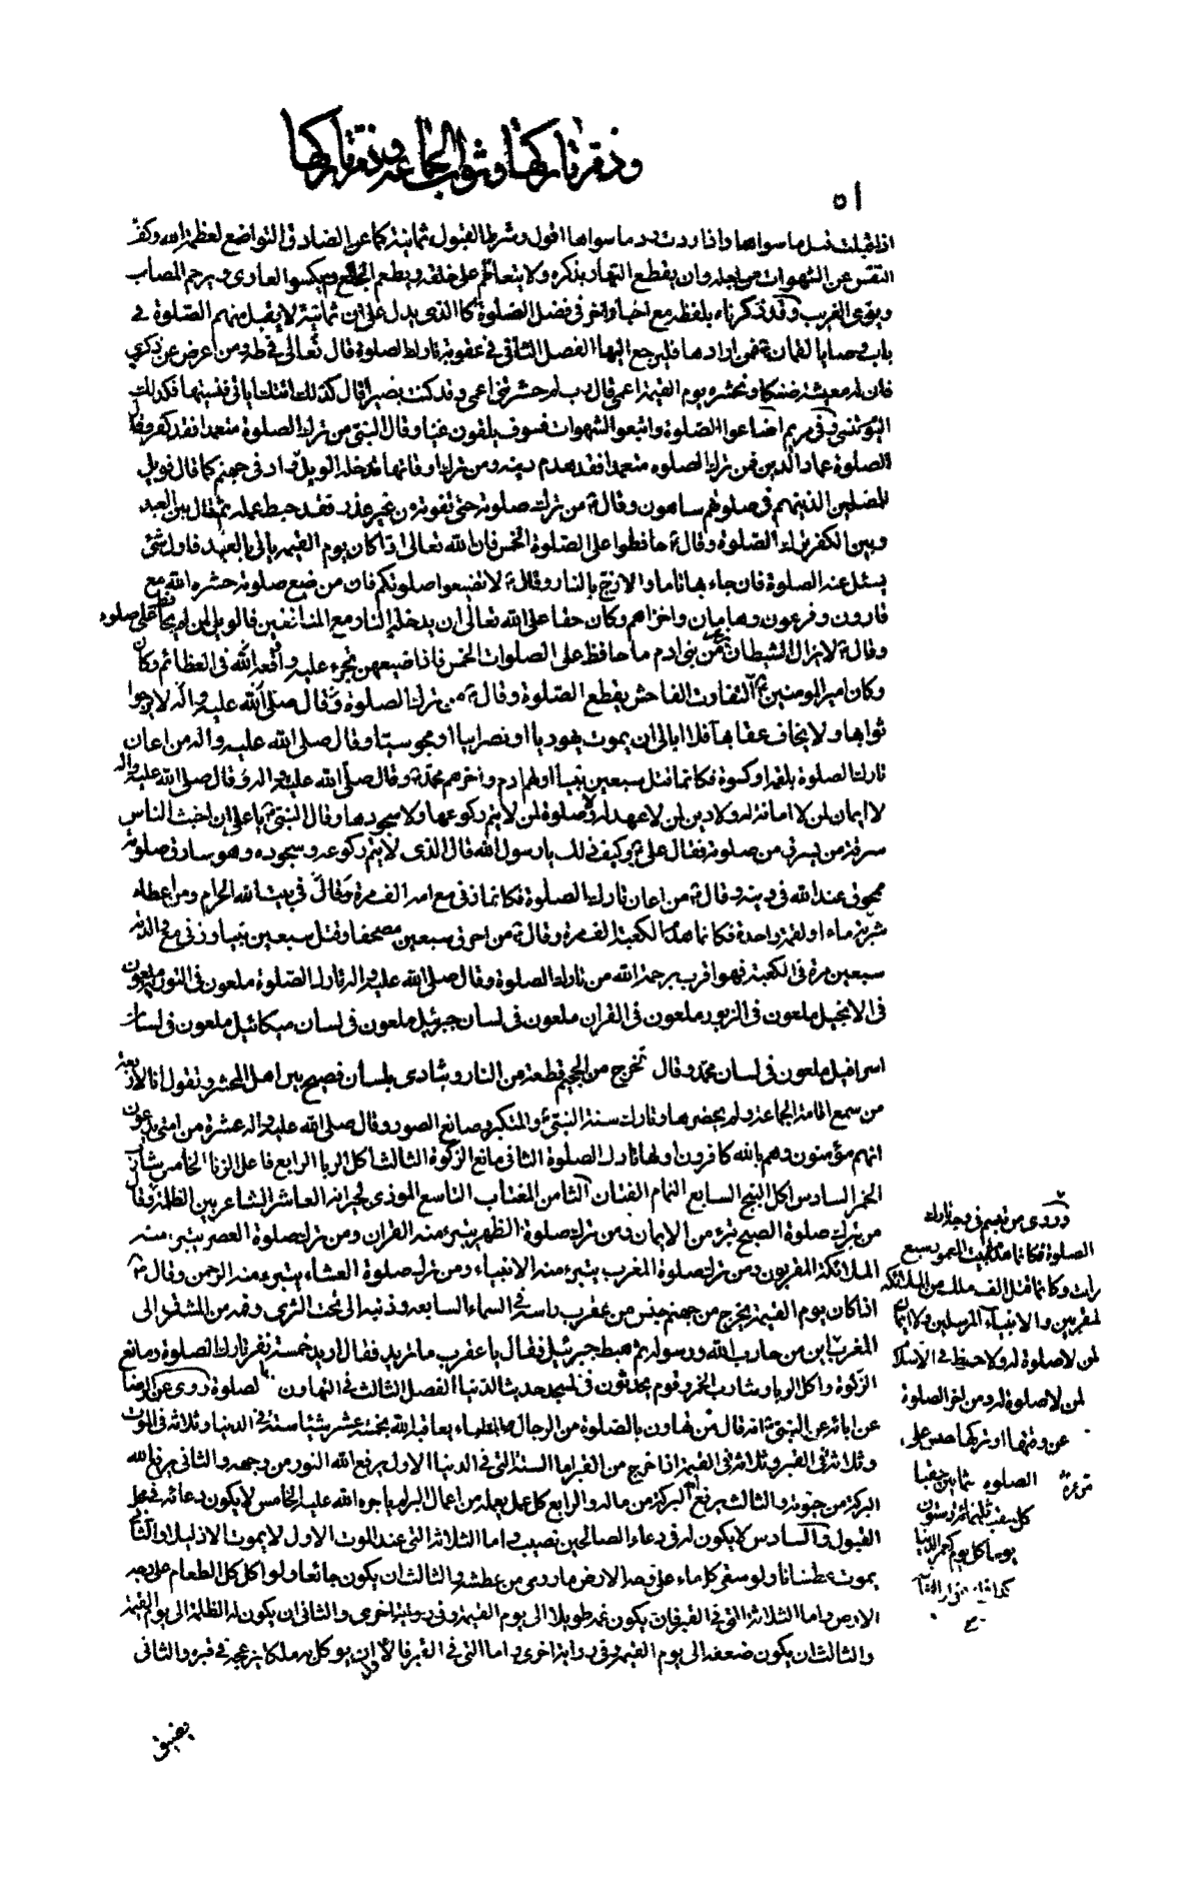 وذم تاركها وثواب الجماعة وذم تاركها
٥١
اذا قبلت قبل ما سواها واذا ردت رد ما سواها اقول وشرط القبول ثمانية كما عن الصادق التواضع لعظمة الله وكف
النفس عن الشهوات من اجله وان يقطع النهار بذكره ولا يتعاظم على خلقه ويطعم الجائع ويكسو العارى ويرحم المصاب
ويؤى الغريب وقد ذكرناه بلفظه مع اخبار اخر فى فضل الصلوة كما الذى يدل على ان ثمانية لا يقبل منهم الصلوة فى
باب وصايا لقمان فمن ارادها فليرجع اليها الفصل الثانى فى عقوبة تارك الصلوة قال تعالى فى طه ومن اعرض عن ذكرى
فان له معيشة ضنكا ونحشره يوم القيمة اعمى قال رب لم حشرتنى اعمى وقد كنت بصيرا قال كذلك اتتك اياتنا فنسيتها فكذلك
اليوم تنسى وفى مريم اضاعوا الصلوة واتبعوا الشهوات فسوف يلقون غيا وقال النبى من ترك الصلوة متعمدا فقد كفر وقال
الصلوة عماد الدين فمن ترك الصلوه متعمدا فقد هدم دينه ومن ترك اوقاتها يدخل الويل واد فى جهنم كما قال فويل
للمصلين الذينهم فى صلوتهم ساهون وقال من ترك صلوته حتى تفوته من غير عذر فقد حبط عمله ثم قال بين العبد
وبين الكفر ترك الصلوة وقال حافظوا على الصلوة الخمس فان الله تعالى اذا كان يوم القيمة ياتى بالعبد فاول شئ
يسئل عنه الصلوة فان جاء بها تاما والا زج بالنار وقال لا تضيعوا صلوتكم فان من ضيع صلوته حشره الله مع
قارون وفرعون وهامان واخزاهم وكان حقا على الله تعالى ان يدخله النار مع المنافقين فالويل لمن لم يحافظ على صلوته
وقال لا يزال الشيطان من بنى ادم ما حافظ على الصلوات الخمس فاذا ضيعهن تجرء عليه واوقعه الله فى العظائم وكان
وكان امير المومنين التفاوت الفاحش يقطع الصلوة وقال من ترك الصلوة وقال صلى الله عليه واله لا يرجوا
ثوابها ولا يخاف عقابها فلا ابالى ان يموت يهوديا او نصرانيا او مجوسيا وقال صلى الله عليه واله من اعان
تارك الصلوة بلقمة او كسوة فكانما قتل سبعين نبيا اولهم ادم واخرهم محمد وقال صلى الله عليه واله وقال صلى الله عليه واله
لا ايمان لمن لا امانة له ولا دين لمن لا عهد له ولا صلوة لمن لا يتم ركوعها ولا سجودها وقال النبى يا على ان اخبث الناس
سرقة من يسرق من صلوته فقال على وكيف ذلك يا رسول الله قال الذى لا يتم ركوعه وسجوده وهو سارق صلوته
ممحوق عند الله فى دينه وقال من اعان تارك الصلوة فكانما زنى مع امه الف مرة وقال فى بيت الله الحرام ومن اعطاه
شربة ماء او لقمة واحدة فكانما هدم الكعبة الف مرة وقال من احرق سبعين مصحفا وقتل سبعين نبيا وزنى مع امه
سبعين مرة فى الكعبة فهو اقرب برحمة الله من تارك الصلوة وقال صلى الله عليه واله تارك الصلوة ملعون فى التورية ملعون
فى الانجيل ملعون فى الزبور ملعون فى القران ملعون فى لسان جبرئيل ملعون فى لسان ميكائيل ملعون فى لسان
اسرافيل ملعون فى لسان محمد وقال تخرج من الجحيم قطعة من النار وينادى بلسان فصيح بين اهل المحشر وتقول انا لاربعة
من سمع اقامة الجماعة ولم يحضرها وتارك سنة النبى والمتكبر وصانع الصور وقال صلى الله عليه واله عشرة من امتى يدعون
انهم مؤمنون وهم بالله كافرون اولها تارك الصلوة الثانى مانع الزكوة الثالث اكل الربا الرابع فاعل الزنا الخامس شارب
الخمر السادس اكل البنج السابع النمام الفتان الثامن المغتاب التاسع الموذى لجيرانه العاشر الشاعر بين الظلمة وقال
من ترك صلوة الصبح تبرء من الايمان ومن ترك صلوة الظهر يتبرء منه القران ومن ترك صلوة العصر يتبرء منه
الملائكة المقربون ومن ترك صلوة المغرب يتبرء منه الانبياء ومن ترك صلوة العشاء يتبرء منه الرحمن وقال
اذا كان يوم القيمة يخرج من جهنم جنس من عقرب راسه فى السماء السابعه وذنبه الى تحت الثرى وفمه من المشرق الى
المغرب اين من حارب الله ورسوله ثم هبط جبرئيل فقال يا عقرب ما تريد فقال اريد خمسة نفر تارك الصلوة ومانع
الزكوة واكل الربا وشارب الخمر وقوم يحدثون فى المسجد حديث الدنيا الفصل الثالث فى التهاون بالصلوة روى عن الرضا
عن ابائه عن النبى انه قال من تهاون بالصلوة من الرجال والنساء يعاقبه الله بخمسة عشر شيئا ستة فى الدنيا وثلاثة فى الموت
وثلاثة فى القبر وثلاثة فى القيمة اذا خرج من القبر اما الستة التى فى الدنيا الاول يرفع الله النور من وجهه والثانى يرفع الله
البركة من حيوته والثالث يرفع البركة من ماله والرابع كل عمل يعمله من اعمال البر لم ياجره الله عليه الخامس لا يكون دعائه فى محل
القبول والسادس لا يكون له فى دعاء الصالحين نصيب واما الثلاثة التى عند الموت الاول لا يموت الا ذليلا والثانى
يموت عطشانا ولو سقى كل ماء على وجه الارض ما روى من عطشه والثالث ان يكون جائعا ولو اكل كل الطعام على وجه
الارض واما الثلاثة التى فى القبر فان يكون غمه طويلا الى يوم القيمة وفى رواية اخرى والثانى ان يكون له الظلمة الى يوم القيمة
والثالث ان يكون ضعفه الى يوم القيمة وفى رواية اخرى واما التى فى القبر فالاول ان يوكل به ملكا يزعجه فى قبره والثانى
بضيق
وروى من تبسم فى وجه تارك
الصلوة فكانما هدم البيت المعمور سبع
مرات وكانما قتل الف ملك من الملائكة
المقربين والانبياء المرسلين ولا ايمان
لمن لا صلوة له ولا حظ فى الاسلام
لمن لا صلوة له ومن اخر الصلوة
عن وقتها او تركها حبس على
الصلوه ثمانين حقبا
كل حقب ثلثمائة وستون
يوما كل يوم كعمر الدنيا